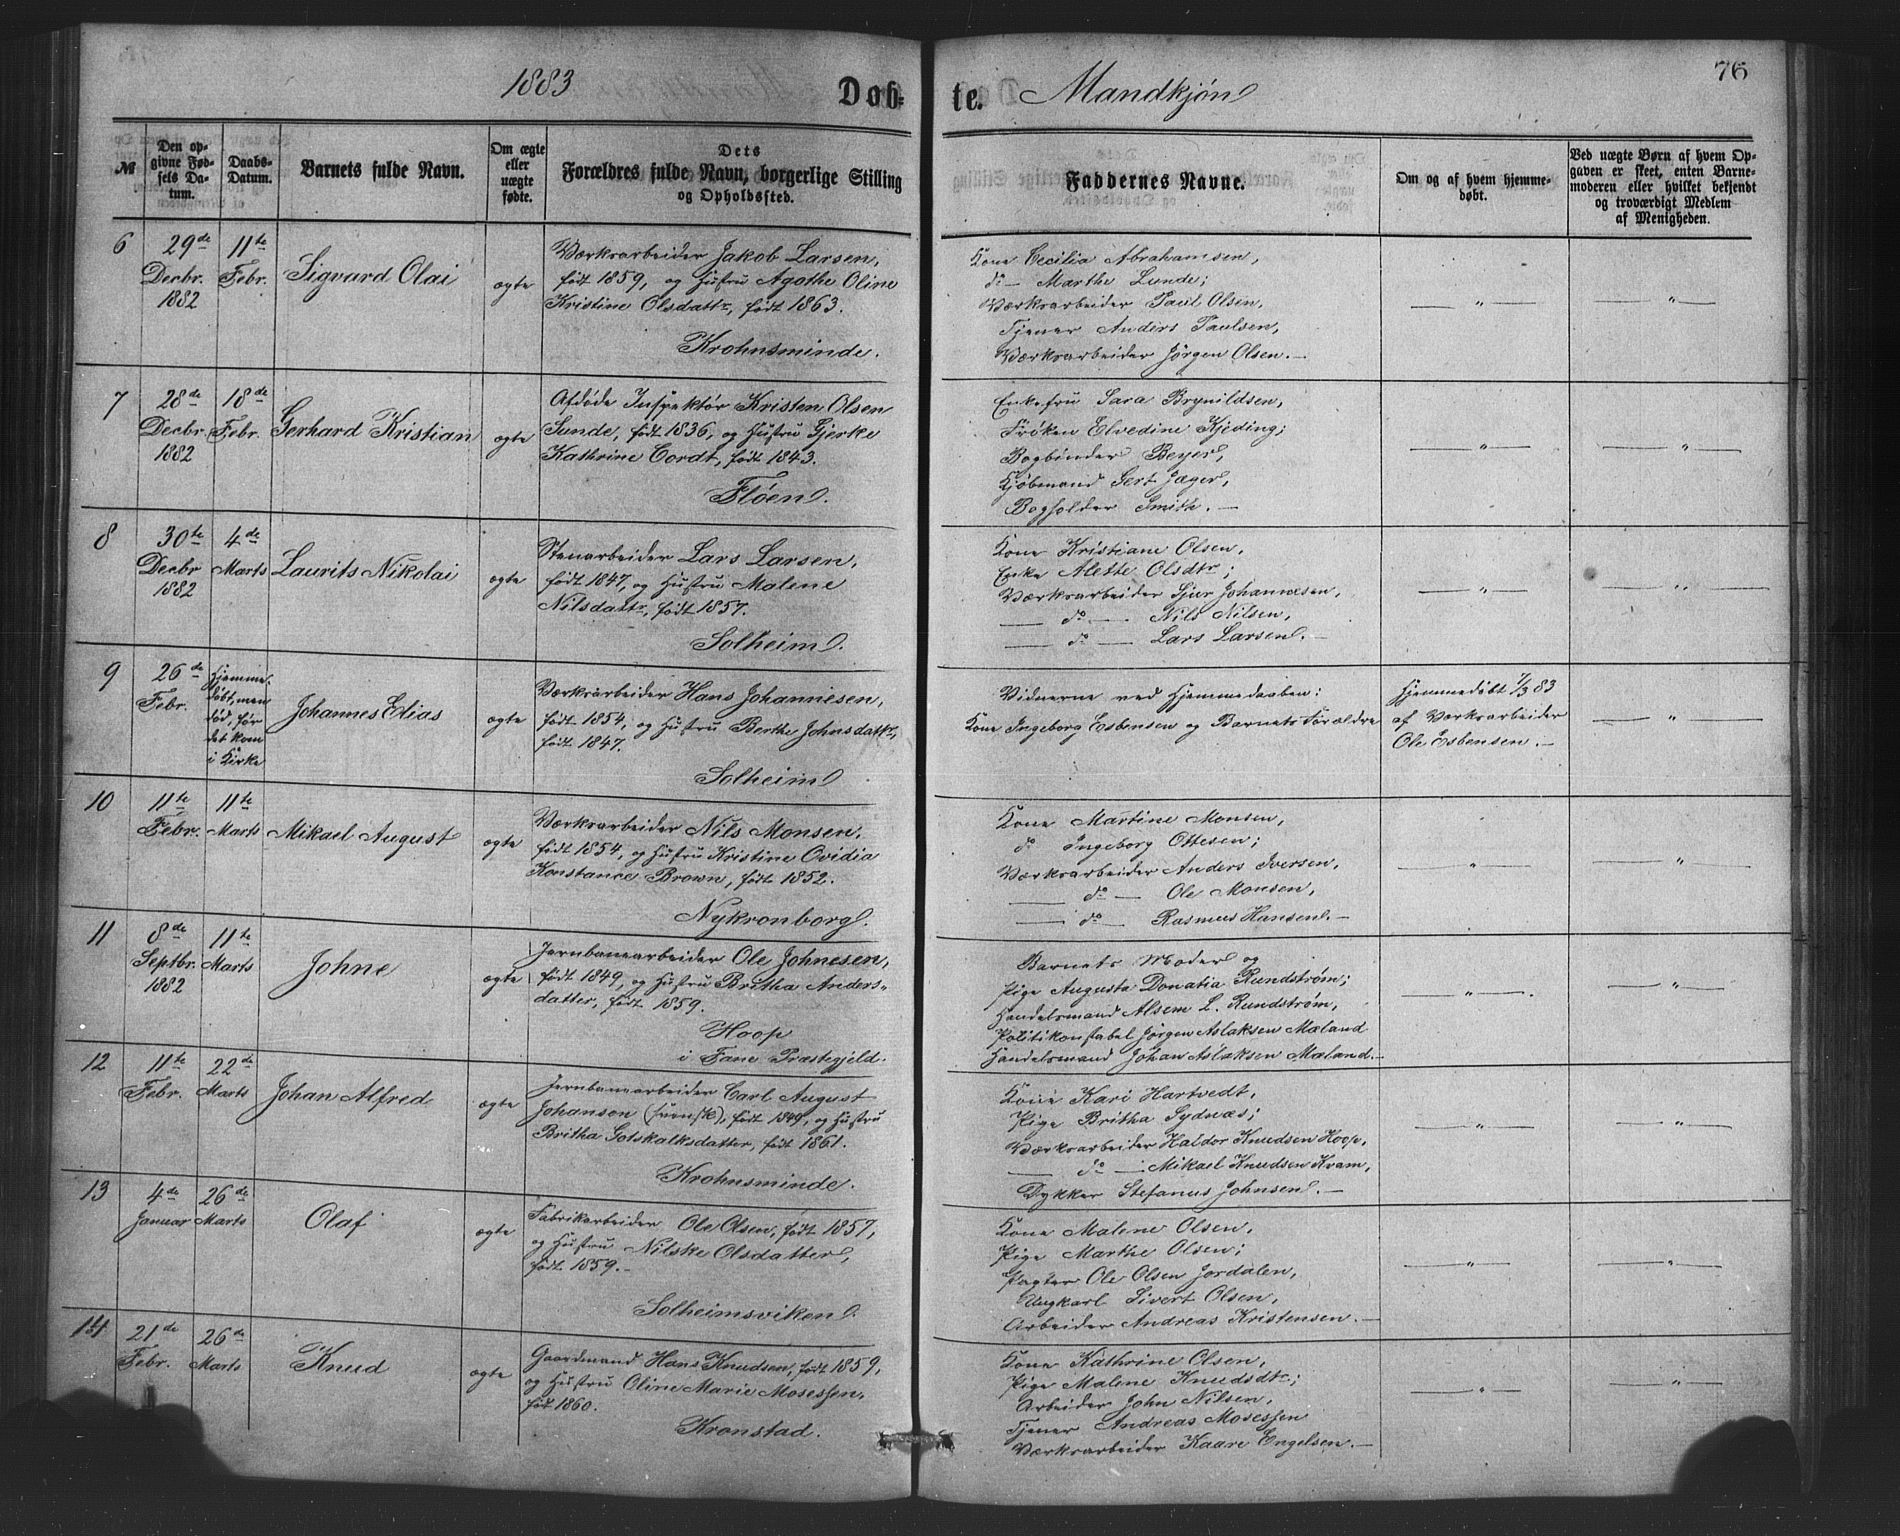 1883
Døb-
te.
Mandkjøn
76
№
Den op-
givne Fød-
sels Da-
tum.
Daabs-
Datum.
Barnets fulde Navn.
Om ægte
eller
uægte
fødte.
Dets
Forældres fulde Navn, borgerlige Stilling
og Opholdssted.
Faddernes Navne.
Om og af hvem hjemme-
døbt.
Ved uægte Børn af hvem Op-
gaven er skeet, enten Barne-
moderen eller hvilket bekjendt
og troværdigt Medlem
af Menigheden.
6
29de
Decbr.
1882
11te
Febr.
Sigvard Olai
ægte
Værksarbeider Jakob Larsen,
født 1859, og Hustru Agathe Oline
Kristine Olsdattr, født 1863.
Krohnsminde.
Kone Cecilia Abrahamsen,
do — Marthe Lunde;
Værksarbeider Paul Olsen,
Tjener Anders Paulsen,
Værksarbeider Jörgen Olsen. —
— " —
— " —
7
28de
Decbr.
1882
18de
Febr.
Gerhard Kristian
ægte
Afdöde Inspektör Kristen Olsen
Sunde, født 1836, og Hustru Gjerke
Kathrine Cordt, født 1843.
Fløen.
Enkefru Sara Brynildsen,
Frøken Elvedine Kjeding;
Bogbinder Beyer,
Kjöbmand Gert Jæger,
Bogholder Smith. —
— " —
— " —
8
30te
Decbr
1882
4de
Marts
Laurits Nikolai
ægte
Stenarbeider Lars Larsen,
født 1847, og Hustru Malene
Nilsdattr, født 1857.
Solheim.
Kone Kristiane Olsen,
Enke Alette Olsdtr;
Værksarbeider Sjur Johannesen,
— do — Nils Nilsen,
— do — Lars Larsen. —
— " —
— " —
9
26de
Febr.
Hjemme-
døbt, men
död, før
det kom
i Kirke
Johannes Elias
ægte
Værksarbeider Hans Johannesen,
født 1854, og Hustru Berthe Johnsdattr,
født 1847.
Solheim
Vidnerne ved Hjemmedaaben:
Kone Ingeborg Esbensen og Barnets Forældre
Hjemmedøbt 1/3 83
af Værksarbeider
Ole Esbensen. —
— " —
10
11te
Febr.
11te
Marts
Mikael August
ægte
Værksarbeider Nils Monsen,
født 1854, og Hustru Kristine Ovidia
Konstance Brown, født 1852.
Nykronborg.
Kone Martine Monsen,
do Ingeborg Ottesen;
Værksarbeider Anders Iversen,
— do — Ole Monsen,
— do Rasmus Hansen. —
— " —
— " —
11
8de
Septbr.
1882
11te
Marts
Johne
ægte
Jernbanearbeider Ole Johnesen,
født 1849, og Hustru Britha Anders-
datter, født 1859.
Hoop
i Fane Præstegjeld.
Barnets Moder og
Pige Augusta Donatia Rundström;
Handelsmand Alsem L. Rundström,
Politikonstabel Jörgen Aslaksen Mæland
Handelsmand Johan Aslaksen Mæland. —
— " —
— " —
12
11te
Febr.
22de
Marts
Johan Alfred
ægte
Jernbanearbeider Carl August
Johanson (svensk), født 1849, og Hustru
Britha Gotskalksdatter, født 1861.
Krohnsminde.
Kone Kari Hartvedt,
Pige Britha Sydnæs;
Værksarbeider Haldor Knudsen Hoop,
— do — Mikael Knudsen Kvam,
Dykker Stefanus Johnsen. —
— " —
— " —
13
4de
Januar
26de
Marts
Olaf
ægte
Fabrikarbeider Ole Olsen, født 1857,
og Hustru Nilske Olsdatter,
født 1859. —
Solheimsviken.
Kone Malene Olsen,
Pige Marthe Olsen;
Pagter Ole Olsen Jordalen,
Ungkarl Sivert Olsen,
Arbeider Andreas Kristensen. —
— " —
— " —
14
21de
Febr.
26de
Marts
Knud
ægte
Gaardmand Hans Knudsen, født 1859,
og Hustru Oline Marie Mosessen,
født 1860.
Kronstad.
Kone Kathrine Olsen,
Pige Malene Knudsdtr;
Arbeider John Nilsen,
Tjener Andreas Mosessen
Værksarbeider Kaare Engelsen. —
— " —
— " —